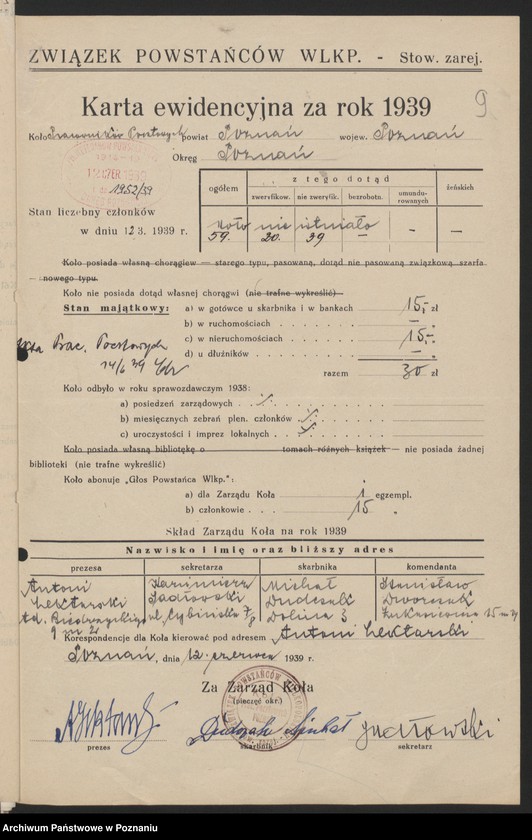 ZWIĄZEK POWSTAŃCÓW WLKP. - Stow. zarej.
Karta ewidencyjna za rok 1939
9
Koło Pracowników Pocztowych powiat Poznań wojew. Poznań
Okręg Poznań
1952/39
Stan liczebny członków
w dniu 12 3. 1939 r.
ogółem
z tego dotąd
żeńskich
zweryfikow. nie zweryfik. bezrobotn. umundurowanych
Koło nie istniało
59. 20. 39 — — —
Koło posiada własną chorągiew — starego typu, pasowaną, dotąd nie pasowaną związkową szarfą
— nowego typu.
Koło nie posiada dotąd własnej chorągwi (nie trafne wykreślić)
Stan majątkowy: a) w gotówce u skarbnika i w bankach 15,- zł
b) w ruchomościach — „
c) w nieruchomościach 15,- „
d) u dłużników — „
razem 30 zł
Prac. Pocztowych
14/6 39
Koło odbyło w roku sprawozdawczym 1938:
a) posiedzeń zarządowych
b) miesięcznych zebrań plen. członków
c) uroczystości i imprez lokalnych
Koło posiada własną bibliotekę o tomach różnych książek — nie posiada żadnej
biblioteki (nie trafne wykreślić)
Koło abonuje „Głos Powstańca Wlkp.":
a) dla Zarządu Koła 1 egzempl.
b) członkowie 15 „
Skład Zarządu Koła na rok 1939
Nazwisko i imię oraz bliższy adres
prezesa sekretarza skarbnika komendanta
Antoni Kazimierz Michał Stanisław
Lektarski Jadłowski Dudczak Dworczak
ul. Cybińska Dolina 3
9 m 2
Korespondencje dla Koła kierować pod adresem Antoni Lektarski
Poznań, dnia 12 czerwca 1939 r.
Za Zarząd Koła
(pieczęć okr.)
Dudczak Michał
Jadłowski
prezes skarbnik sekretarz
Archiwum Państwowe w Poznaniu